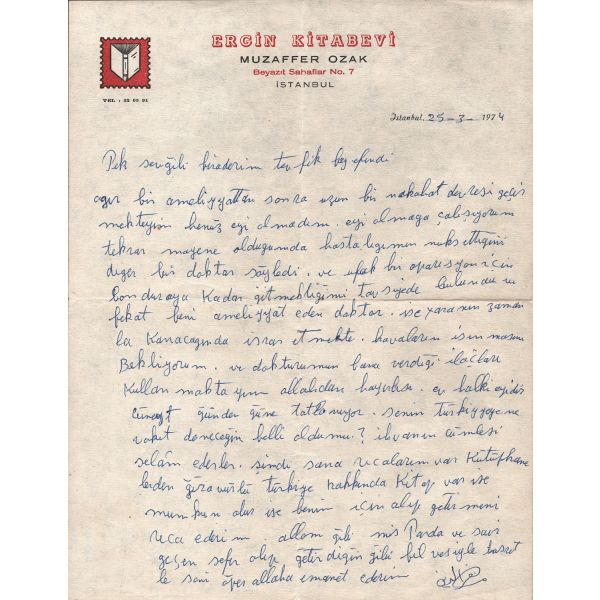 ERGİN KİTABEVİ
MUZAFFER OZAK
Beyazıt Sahaflar No. 7
İSTANBUL
TEL : 22 00 91
İstanbul, 25-3- 1974
Pek sevgili biraderim tevfik bey efendi
agır bir ameliyyattan sonra uzun bir nakahat devresi geçir
mekteyim henüz eyi olmadım. eyi olmaga çalışıyorum
tekrar mayene olduğumda hastalıgımın nuks ettigini
diger bir doktar söyledi. ve ufak bir oparesyon için
Londuraya Kadar gitmekliğimi tavsiyede bulundu ve
fekat beni ameliyyat eden doktar. ise yaranın zaman
la Kanacagında israr etmekte. havaların ısınmasını
Bekliyorum. ve dokturumun bana verdigi ilaçları
Kullanmaktayım allahdan hayırlısı. ev halkı eyidir
cüneyt günden güne tatlanıyor. senin türkiyyeye ne
vakit döneceğin belli oldumu? ihvanın cümlesi
selâm ederler. simdi sana ricalarım var Kütüphane
lerden gravürlü türkiye hakkında Kitap var ise
munkun olur ise benim için alıp getirmeni
rica ederim allom gibi mis Parda ve sair
geçen sefer alıp getirdigin gibi bil vesiyle hasret
le seni öper allaha emanet ederim